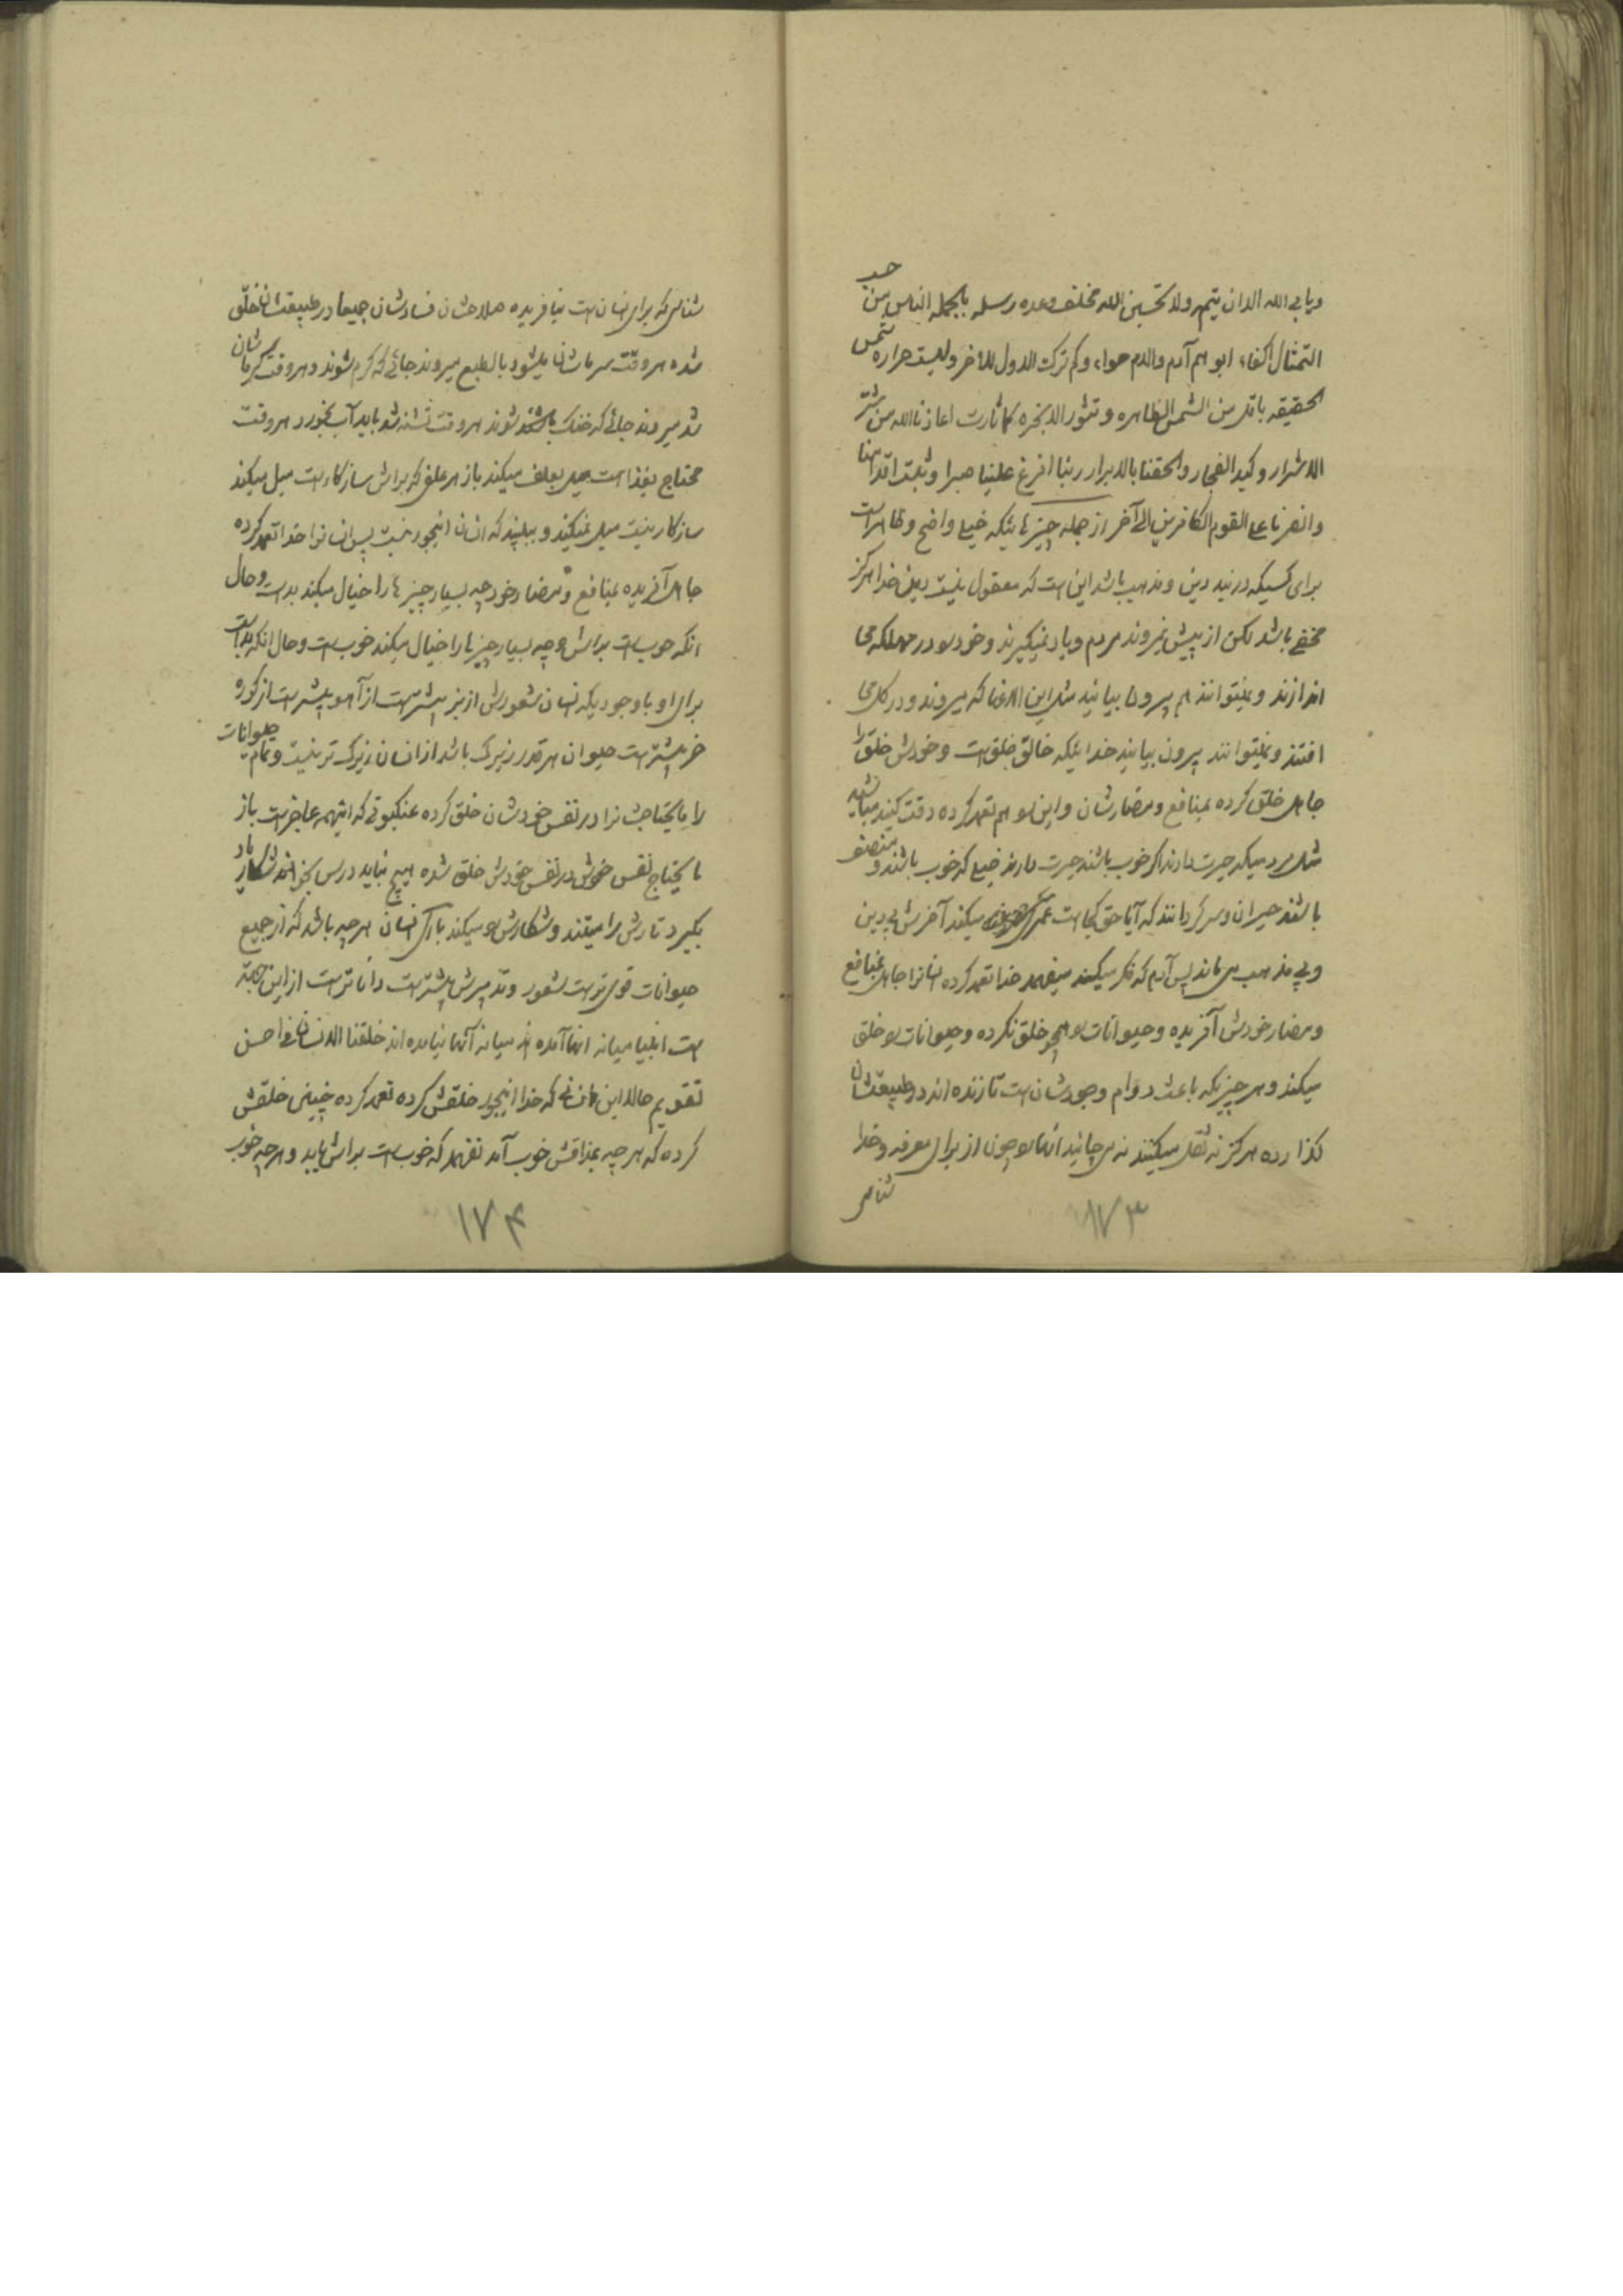 ویابی الله الا ان یتمه ولا تحسبن الله مخلف وعده رسله بالجمله الناس من حیث
التمثال اکفاء ابوهم آدم والام حواء وکم ترک الاول للآخر ولیست حراره شمس
الحقیقه باقل من الشمس الظاهره وتثور الابخره کما ثارت اعاذنا الله من شر
الاشرار وکید الفجار والحقنا بالابرار ربنا افرغ علینا صبرا وثبت اقدامنا
وانصرنا علی القوم الکافرین الی آخر از جمله چیزهائیکه خیلی واضح وظاهر است
برای کسیکه دربند دین ومذهب باشد این است که معقول نیست دین خدا هرگز
مخفی باشد لکن از پیش نمروند مردم ویاد نمیگیرند وخود را در مهلکه می
اندازند ونمیتوانند هم بیرون بیایند مثل این الاغها که میروند ودر گل می
افتند ونمیتوانند بیرون بیایند خدائیکه خالق خلق است وخودش خلق را
جاهل خلق کرده بمنافع ومضارشان واین را هم تعمد کرده دقت کنید
مردمیکه حیرت دارند اگر خوب باشند حیرت دارند خیلی که خوب باشند ومنصف
باشند حیران وسرگردانند که آیا حق کجا است میکند آخرش بی دین
وبی مذهب می ماند پس آدم که فکر میکند میفهمد خدا تعمد کرده انسانرا جاهل بمنافع
ومضار خودش آفریده وحیوانات را همچو خلق نکرده وحیوانات را خلق
میکند وهر چیزیکه باعث دوام وجودشان است تا زنده اند در طبیعتشان
گذارده هرگز نه ثقل میکنند نه می چایند اینها را چون از برای معرفه وخدا
شناسی
شناسی که برای انسان است نیافریده صلاحشان فسادشان جمیعا در طبیعتشان خلق
شده هر وقت سرماشان میشود بالطبع میروند جائی که گرم شوند وهر وقت گرماشان
شد میروند جائی که خنک شوند هر وقت تشنه شد باید آب بخورد هر وقت
محتاج بغذا است میل بعلف میکند باز هر علفی که برایش سازگار است میل میکند
سازگار نیست میل نمیکند وببینید که انسان اینجور نیست پس انسانرا خدا تعمد کرده
جاهل آفریده بمنافع ومضار خود چه بسیار چیزها را خیال میکند بد است وحال
آنکه خوب است برایش وچه بسیار چیزها را خیال میکند خوب است وحال آنکه بد است
برای او با وجودیکه انسان شعورش از بز بیشتر است از آهو بیشتر است از گوره
خر بیشتر است حیوان هر قدر زیرک باشد از انسان زیرک تر نیست وتمام حیوانات
را مایحتاجشانرا در نفس خودشان خلق کرده عنکبوتی که اینهمه عاجز است باز
مایحتاج نفس خودش در نفس خودش خلق شده هیچ نباید درس بخواند شکار یاد
بگیرد تارش را میتند وشکارش را میکند انسان هر چه باشد که از جمیع
حیوانات قوی تر است شعور وتدبیرش بیشتر است داناتر است از این جهة
است انبیا میانه اینها آمده اند میانه آنها نیامده اند خلقنا الانسان فی احسن
تقویم حالا این انسانی که خدا اینجور خلقش کرده تعمد کرده چنین خلقش
کرده که هر چه بمذاقش خوب آمد نفهمد که خوب است برایش یا بد وهر چه خوب
۱۷۳
۱۷۴